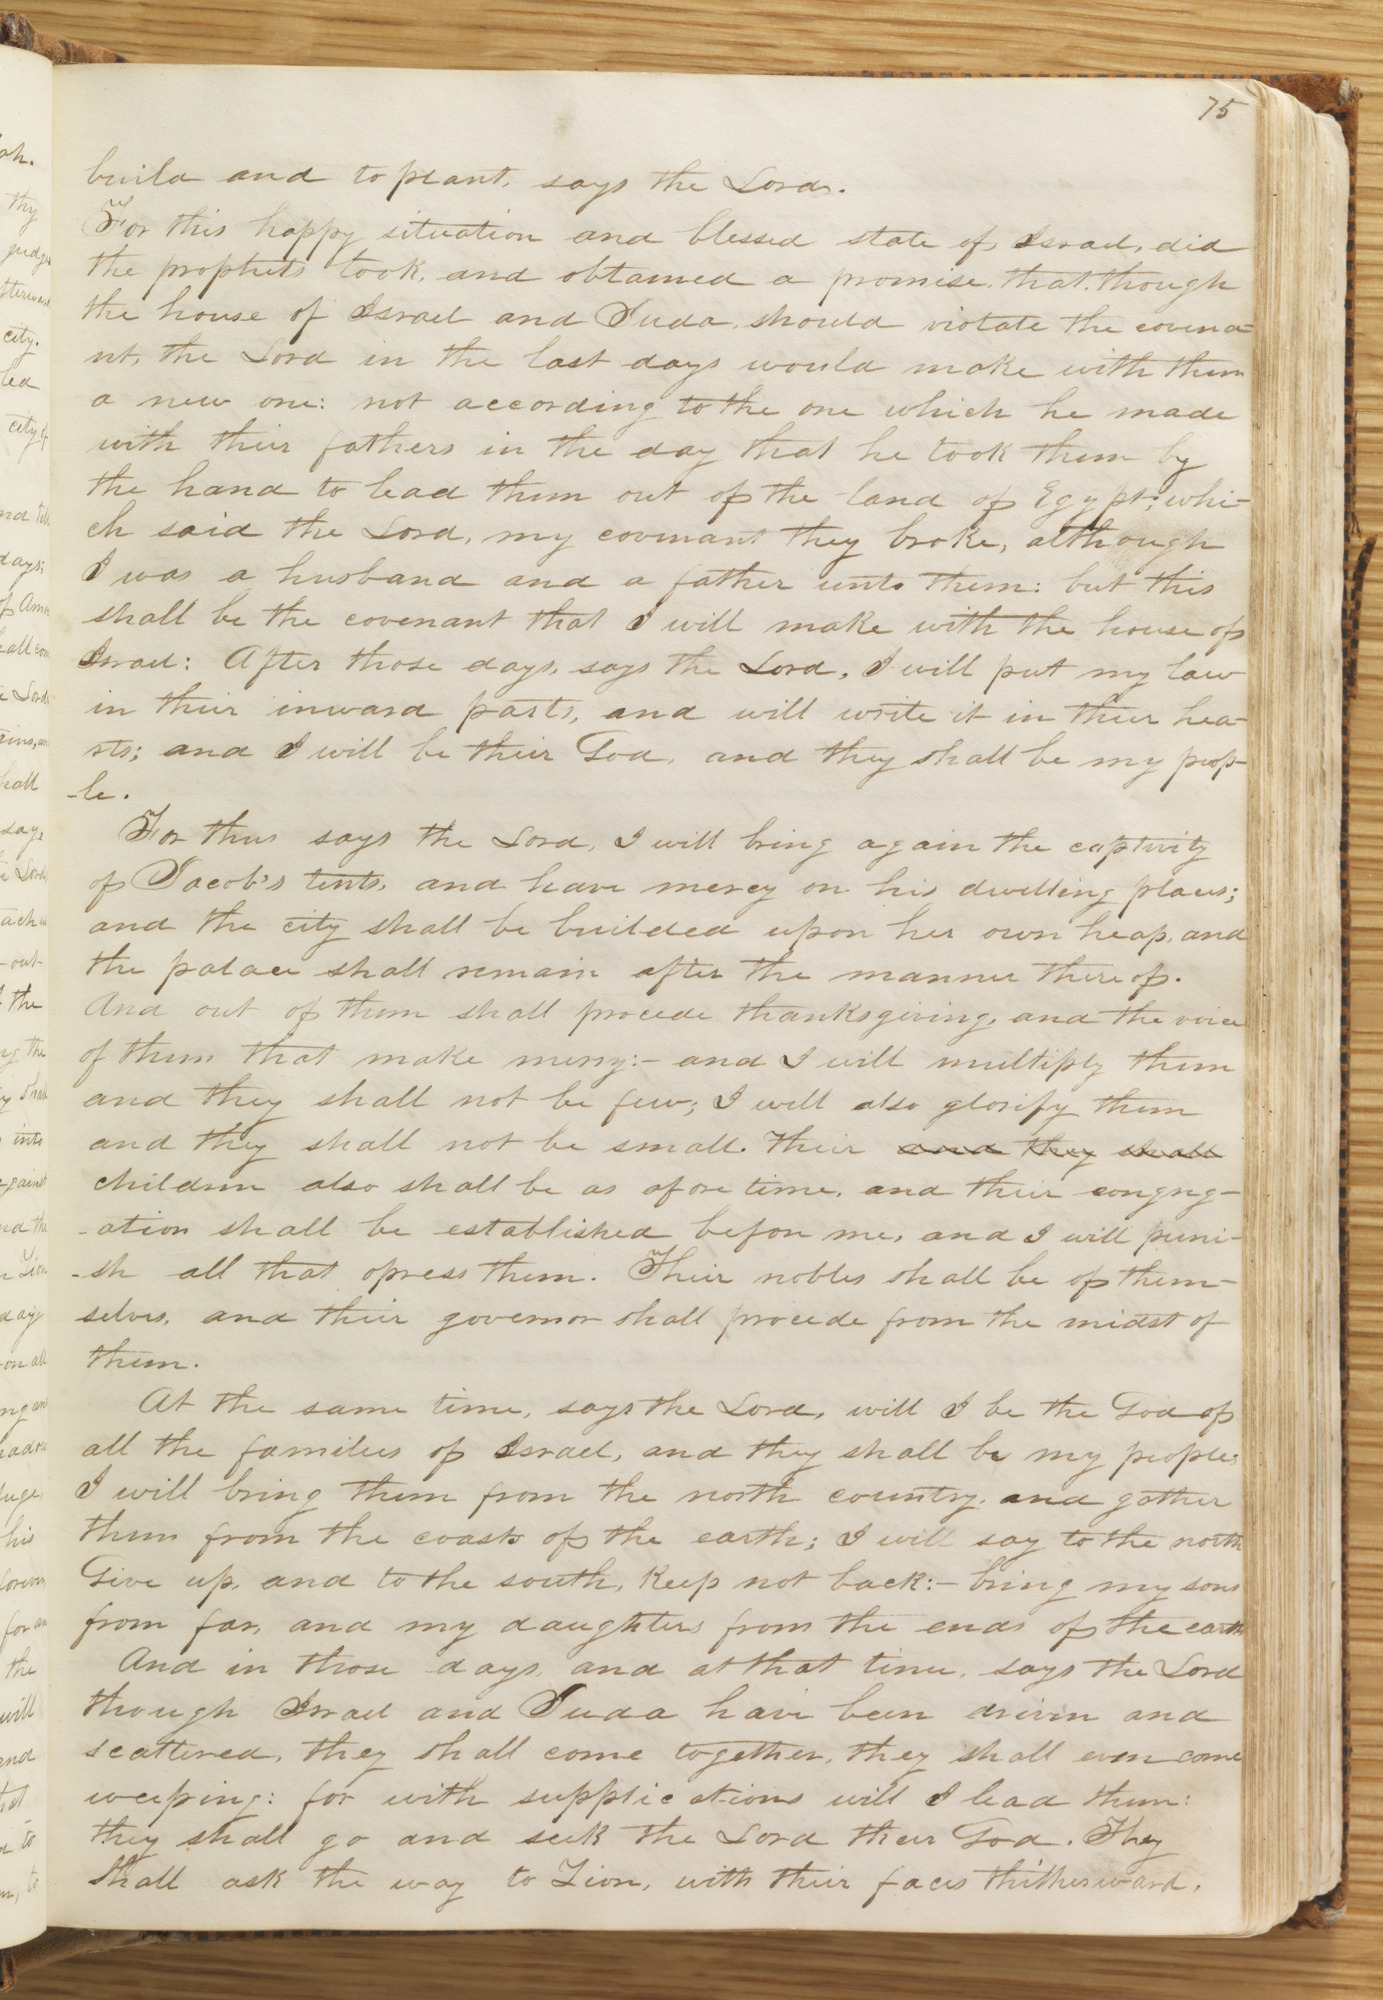 75
build and to plant, says the Lord.
For this happy situation and blessed state of Israel, did
the prophets look, and obtained a promise, that, though
the house of Israel and Juda, should violate the covena-
nt, the Lord in the last days would make with them
a new one: not according to the one which he made
with their fathers in the day that he took them by
the hand to lead them out of the land of Egypt; whi-
ch said the Lord, my covenant they broke, although
I was a husband and a father unto them: but this
shall be the covenant that I will make with the house of
Israel: After those days, says the Lord, I will put my law
in their inward parts, and will write it in their hea-
rts; and I will be their God, and they shall be my peop-
-le.
For thus says the Lord, I will bring again the captivity
of Jacob's tents, and have mercy on his dwelling places;
and the city shall be builded upon her own heap, and
the palace shall remain after the manner thereof.
And out of them shall procede thanksgiving, and the voice
of them that make merry:- and I will multiply them
and they shall not be few; I will also glorify them
and they shall not be small. Their and they shall
children also shall be as afore time, and their congreg-
-ation shall be established before me, and I will puni-
-sh all that opress them. Their nobles shall be of them-
selves, and their governor shall procede from the midst of
them.
At the same time, says the Lord, will I be the God of
all the families of Israel, and they shall be my people;
I will bring them from the north country, and gather
them from the coasts of the earth; I will say to the north
Give up, and to the south, Keep not back:- bring my sons
from far, and my daughters from the ends of the earth
And in those days, and at that time, says the Lord
though Israel and Juda have been driven and
scattered, they shall come together, they shall even come
weeping: for with supplications will I lead them:
they shall go and seek the Lord their God. They
shall ask the way to Zion, with their faces thitherward,